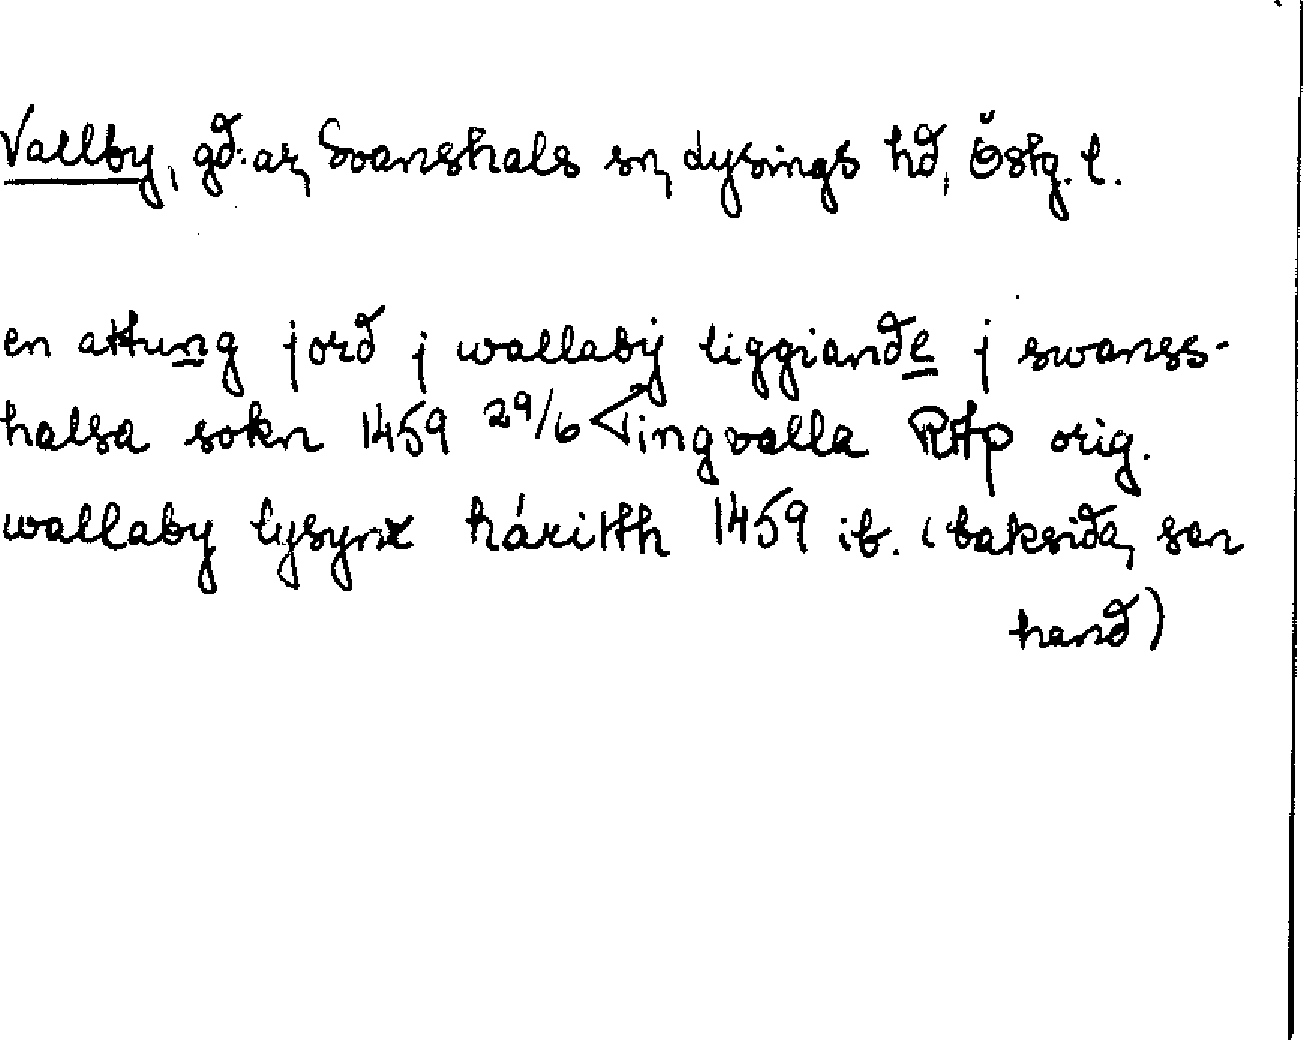 Vallby, gd:ar, Svanshals sn, Lysings hd, Östg. l.
en attung jord j wallaby liggiande j swanss-
halsa sokn 1459 29/6 Tingvalla RAp orig.
wallaby lysynx háritth 1459 ib. (baksida, sen
hand)